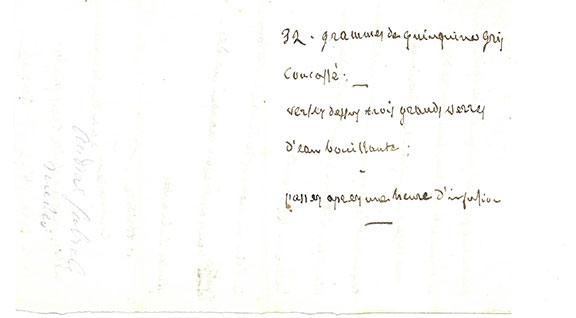 32. grammes de quinquina gris
Concassé;
versez dessus trois grands verres
d'eau bouillante;
passez apres une heure d'infusion